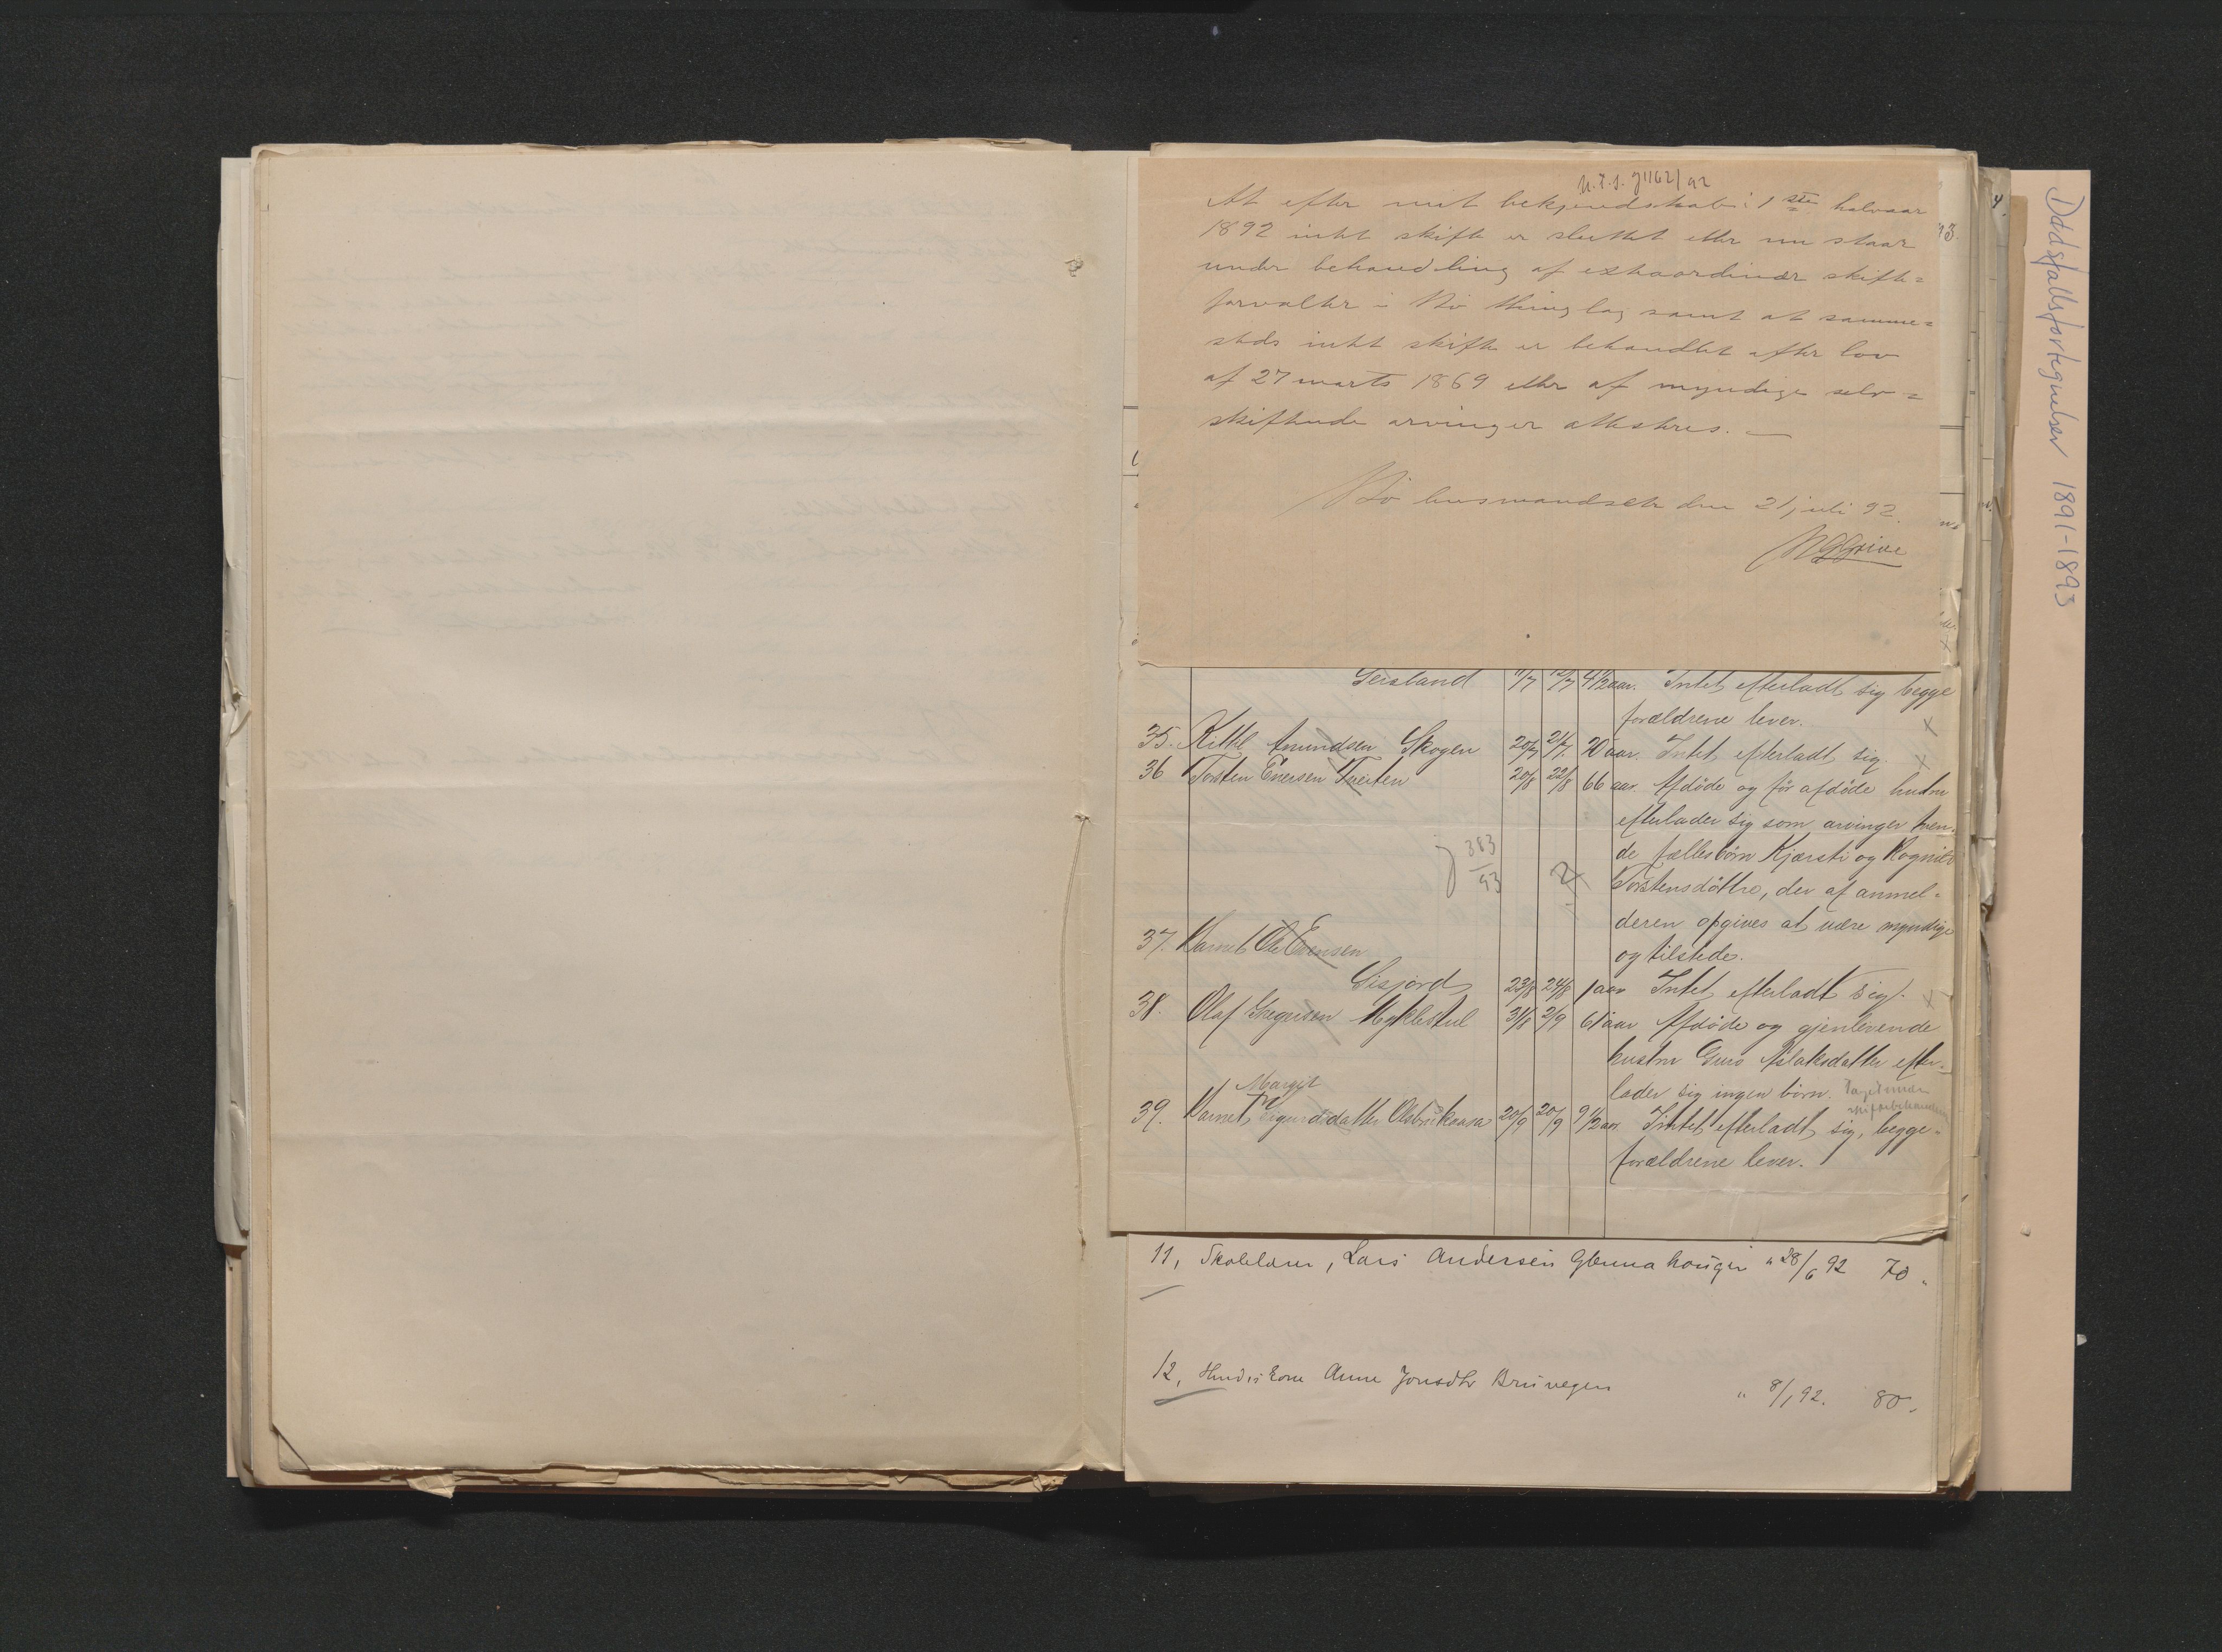 N.T.S. J 1162/92
At efter mit bekjendskab i 1ste halvaar
1892 intet skifte er sluttet eller nu staar
under behandling af extraordinær skifte=
forvalter i Bö thinglag samt at samme=
steds intet skifte er behandlet efter lov
af 27 marts 1869 eller af myndige selv=
skiftende arvinger attesteres. —
Bö lensmandsetr den 21 juli 92.
Geisland 11/7 12/7 4 1/2 aar. Intet efterladt sig begge
forældrene lever. ×
35. Kittil Amundsen Skogen 20/7 21/7 20 aar. Intet efterladt sig. ×
36 Torsten Evensen Tveiten 20/8 22/8 66 aar. Afdöde og för afdöde hustru
efterlader sig som arvinger tven=
J 383/93 de fællesbörn Kjærsti og Rognild
Torstensdöttre, der af anmel=
deren opgives at være myndige
37. Barnet Ole Evensen
og tilstede.
Gisjord 23/8 24/8 1 aar Intet efterladt sig. ×
38. Olaf Gregersen Myklestul 31/8 2/9 61 aar Afdöde og gjenlevende
hustru Guro Aslaksdatter efter=
Margit
lader sig ingen börn. Taget under
skiftebehandling
39. Barnet Sigurdsdatter Olsbrukaasa 20/9 20/9 9 1/2 aar. Intet efterladt sig, begge=
forældrene lever.
11, Skolelærer, Lars Andersen Glenna hougen " 28/6 92 70 "
12, Anne Jonsdtr Bruvegen " 8/1 92. 80 "
Dødsfallsfortegnelser 1891-1893